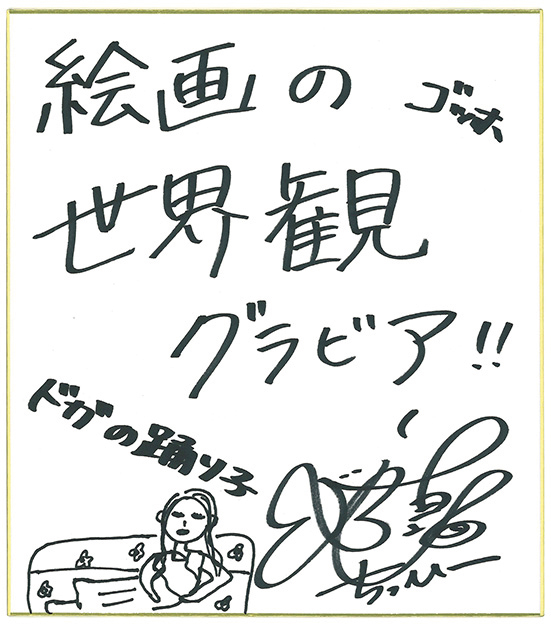 絵画の
ゴッホ
世界観
グラビア!!
ドガの踊り子
ちっひー